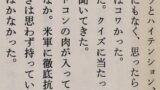 ラとハイテンション、
にもなく、思ったら
はコワかった。
た。クイズに当たっ
聞いてきた。
トコンの肉が入って
なか。米軍に徹底抗
さは思わず持ってい
はなかなかった。